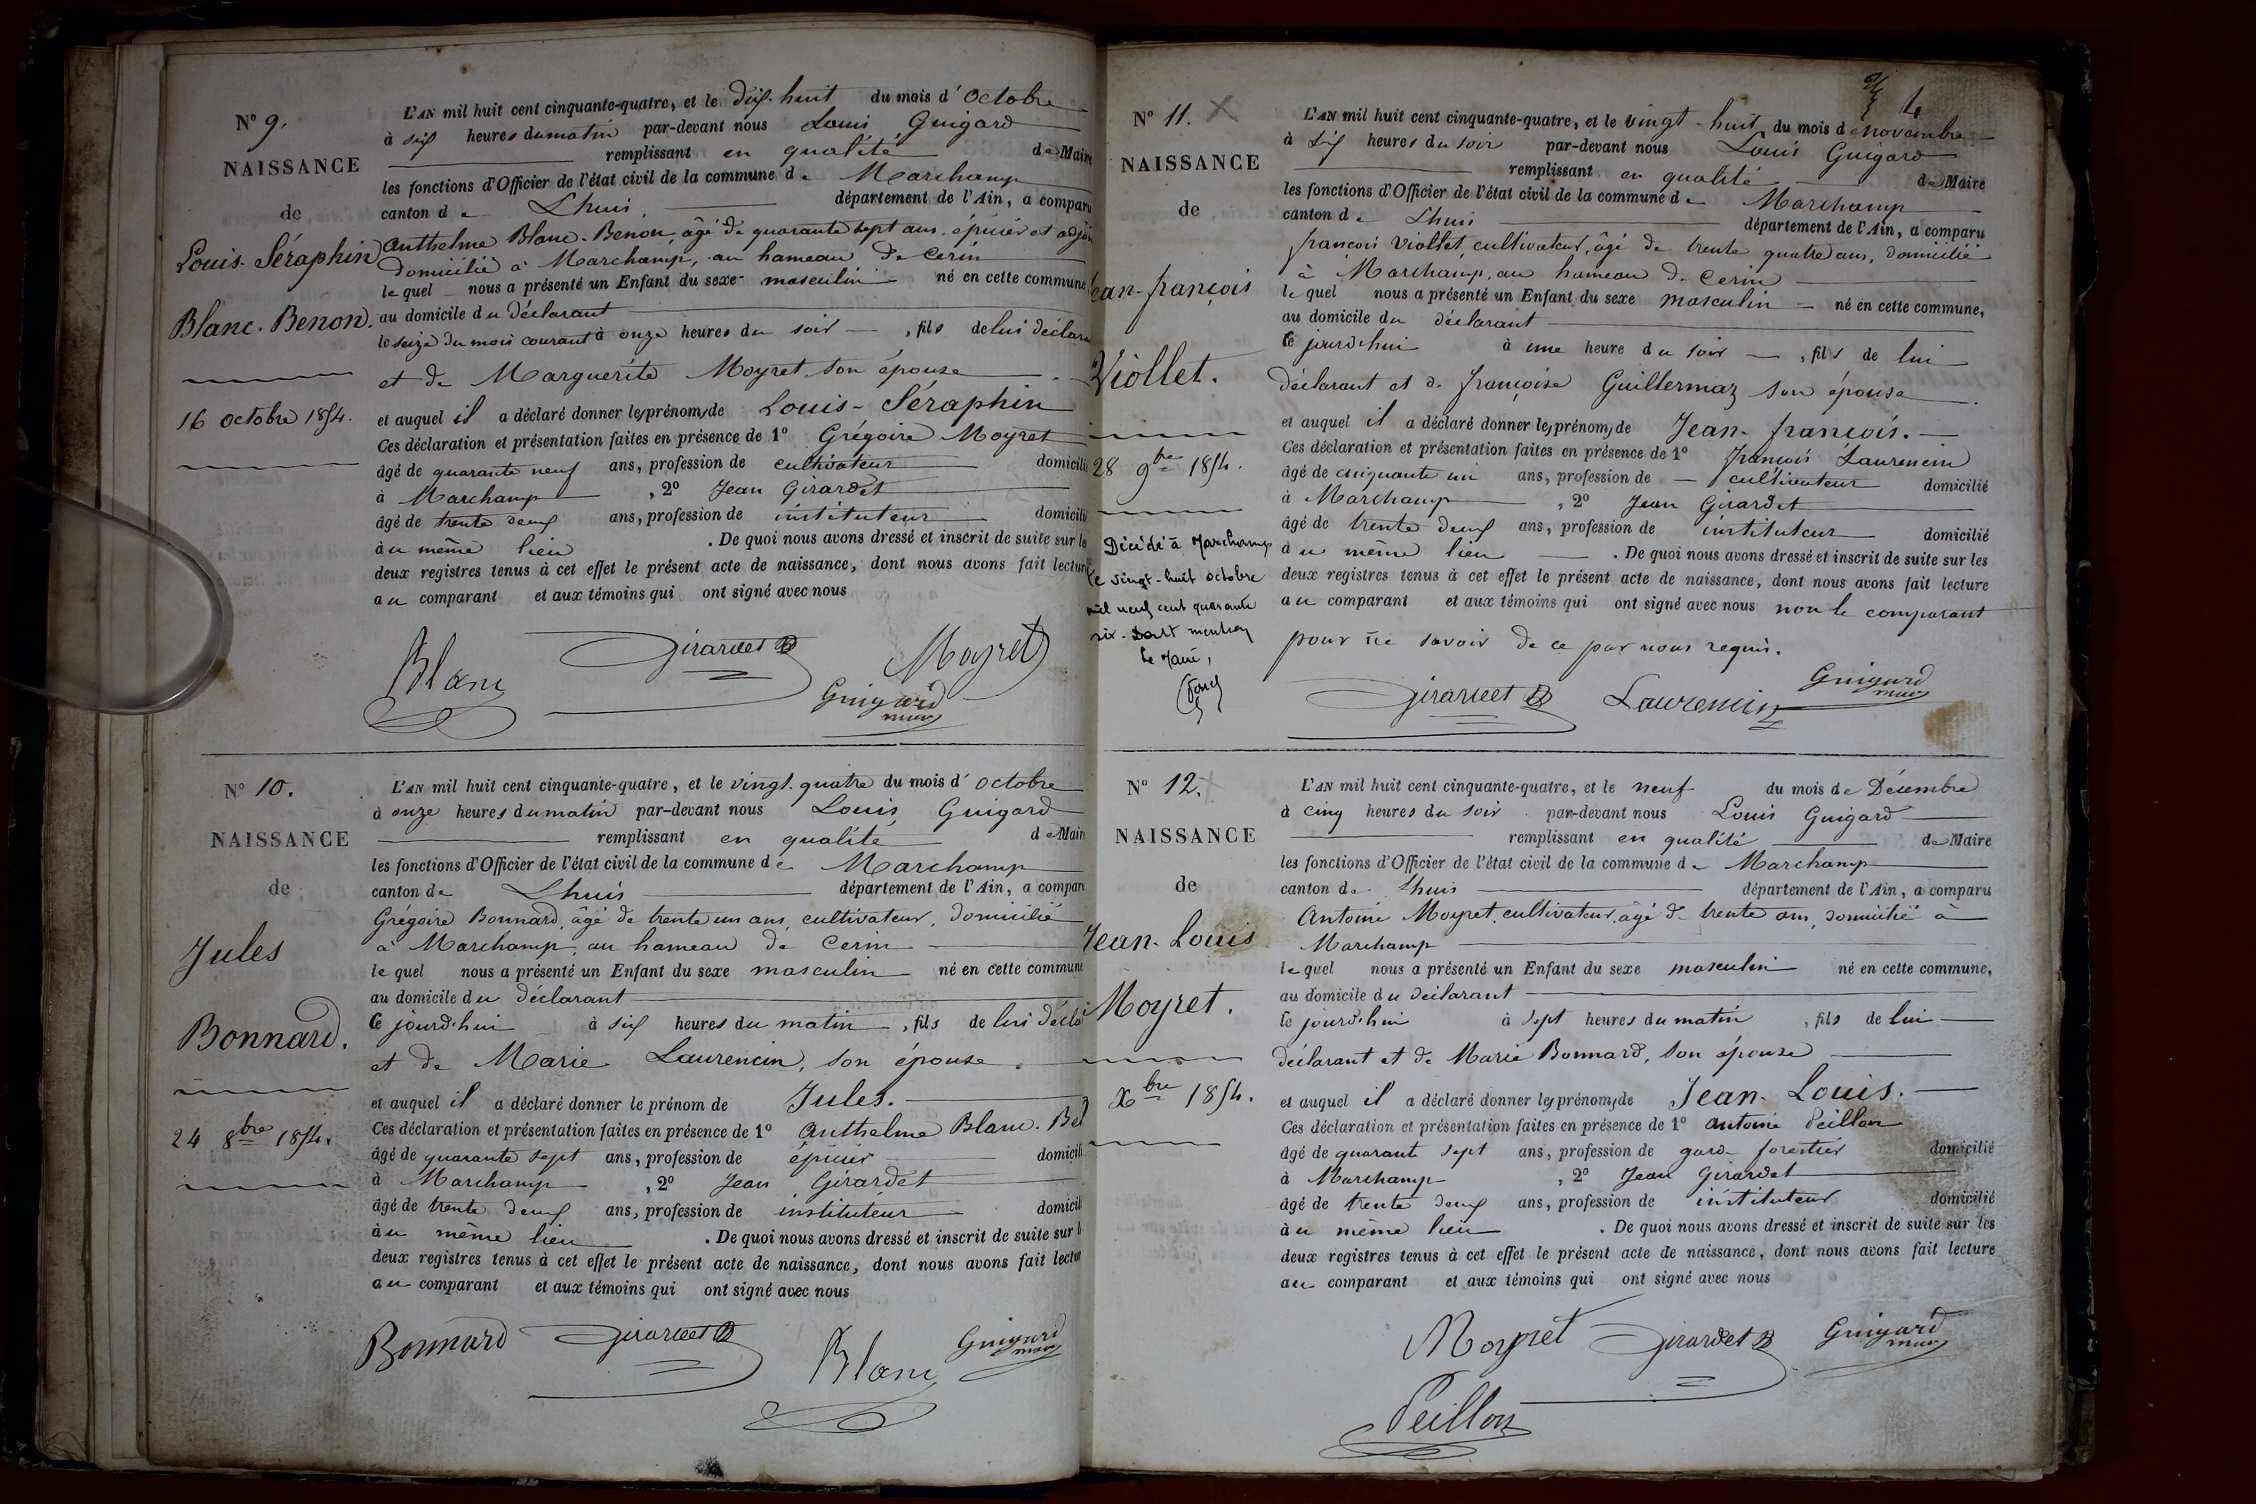 N° 9.
NAISSANCE
de
Louis-Séraphin
Blanc-Benon.
16 octobre 1854.
L'AN mil huit cent cinquante-quatre, et le dix-huit du mois d'octobre
à six heures du matin par-devant nous Louis Guigard
remplissant en qualité de Maire
les fonctions d'Officier de l'état civil de la commune de Marchamp
canton de Lhuis département de l'Ain, a comparu
Anthelme Blanc-Benon, âgé de quarante sept ans, épicier et adjoin
domicilié à Marchamp, au hameau de Cerin
lequel nous a présenté un Enfant du sexe masculin né en cette commune,
au domicile du déclarant
le seize du mois courant à onze heures du soir, fils de lui déclara
et de Marguerite Moyret son épouse.
et auquel il a déclaré donner les prénoms de Louis-Séraphin
Ces déclaration et présentation faites en présence de 1° Grégoire Moyret
âgé de quarante neuf ans, profession de cultivateur domicilié
à Marchamp, 2° Jean Girardet
âgé de trente deux ans, profession de instituteur domicilié
à u même lieu. De quoi nous avons dressé et inscrit de suite sur les
deux registres tenus à cet effet le présent acte de naissance, dont nous avons fait lecture
au comparant et aux témoins qui ont signé avec nous
Blanc Girardet Moyret
Guigard
maire
N° 10.
NAISSANCE
de
Jules
Bonnard.
24 8bre 1854.
L'AN mil huit cent cinquante-quatre, et le vingt-quatre du mois d'octobre
à onze heures du matin par-devant nous Louis Guigard
remplissant en qualité de Maire
les fonctions d'Officier de l'état civil de la commune de Marchamp
canton de Lhuis département de l'Ain, a comparu
Grégoire Bonnard, âgé de trente un ans, cultivateur, domicilié
à Marchamp, au hameau de Cerin
lequel nous a présenté un Enfant du sexe masculin né en cette commune
au domicile du déclarant
Ce jourd'hui à six heures du matin, fils de lui décla
et de Marie Laurencin, son épouse.
et auquel il a déclaré donner le prénom de Jules.
Ces déclaration et présentation faites en présence de 1° Anthelme Blanc-Be
âgé de quarante sept ans, profession de épicier domicili
à Marchamp, 2° Jean Girardet
âgé de trente deux ans, profession de instituteur domicili
à u même lieu. De quoi nous avons dressé et inscrit de suite sur l
deux registres tenus à cet effet le présent acte de naissance, dont nous avons fait lectur
au comparant et aux témoins qui ont signé avec nous
Bonnard Girardet Blanc Guigard
maire
4
N° 11.
NAISSANCE
de
Jean-françois
Viollet.
28 9bre 1854.
Décédé à Marchamp
le vingt-huit octobre
mil neuf cent quarante
six. Dont mention
Le Maire,
L'AN mil huit cent cinquante-quatre, et le vingt-huit du mois de novembre
à six heures du soir par-devant nous Louis Guigard
remplissant en qualité de Maire
les fonctions d'Officier de l'état civil de la commune de Marchamp
canton de Lhuis département de l'Ain, a comparu
françois Viollet, cultivateur, âgé de trente quatre ans, domicilié
à Marchamp, au hameau de Cerin
lequel nous a présenté un Enfant du sexe masculin né en cette commune,
au domicile du déclarant
Ce jourd'hui à une heure du soir, fils de lui
déclarant et de françoise Guillermaz son épouse.
et auquel il a déclaré donner les prénoms de Jean-françois.
Ces déclaration et présentation faites en présence de 1° françois Laurencin
âgé de cinquante un ans, profession de cultivateur domicilié
à Marchamp, 2° Jean Girardet
âgé de trente deux ans, profession de instituteur domicilié
à u même lieu. De quoi nous avons dressé et inscrit de suite sur les
deux registres tenus à cet effet le présent acte de naissance, dont nous avons fait lecture
au comparant et aux témoins qui ont signé avec nous non le comparant
pour ne savoir de ce par nous requis.
Girardet Laurencin Guigard
maire
N° 12.
NAISSANCE
de
Jean-Louis
Moyret.
Xbre 1854.
L'AN mil huit cent cinquante-quatre, et le neuf du mois de Décembre
à cinq heures du soir par-devant nous Louis Guigard
remplissant en qualité de Maire
les fonctions d'Officier de l'état civil de la commune de Marchamp
canton de Lhuis département de l'Ain, a comparu
Antoine Moyret, cultivateur, âgé de trente ans, domicilié à
Marchamp
lequel nous a présenté un Enfant du sexe masculin né en cette commune,
au domicile du déclarant
Ce jourd'hui à sept heures du matin, fils de lui
déclarant et de Marie Bonnard, son épouse
et auquel il a déclaré donner les prénoms de Jean-Louis.
Ces déclaration et présentation faites en présence de 1° Antoine Peillon
âgé de quarante sept ans, profession de garde forestier domicilié
à Marchamp, 2° Jean Girardet
âgé de trente deux ans, profession de instituteur domicilié
à u même lieu. De quoi nous avons dressé et inscrit de suite sur les
deux registres tenus à cet effet le présent acte de naissance, dont nous avons fait lecture
au comparant et aux témoins qui ont signé avec nous
Moyret Girardet Guigard
maire
Peillon